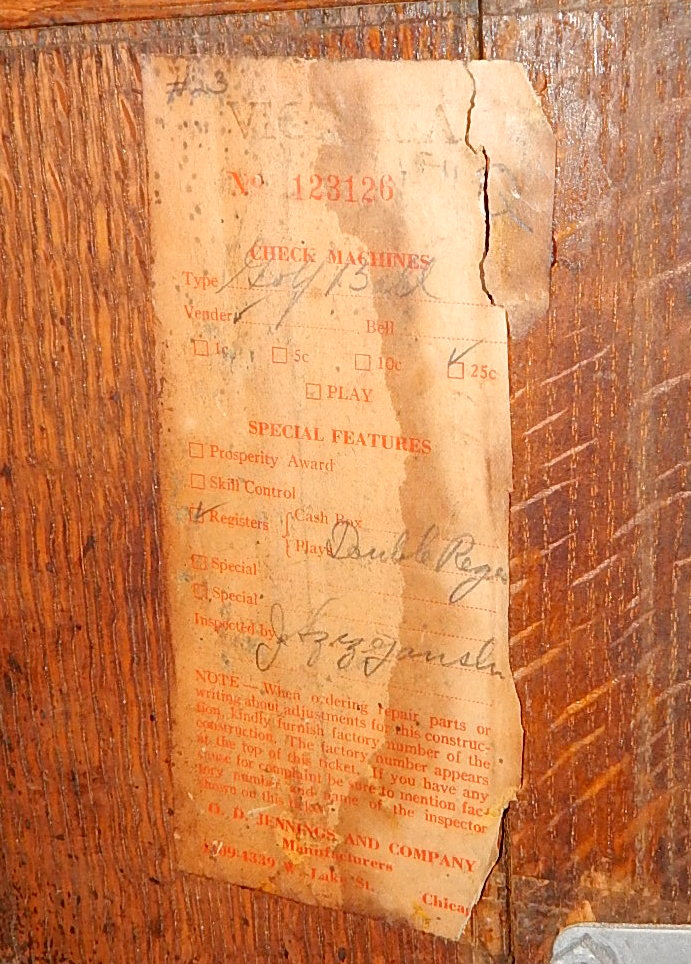 #23
VIC
Nº 123126
CHECK MACHINES
Type Golf Ball
Vender Bell
1c 5c 10c 25c
PLAY
SPECIAL FEATURES
Prosperity Award
Skill Control
Registers { Cash Box
Plays Double Regis
Special
Special
Inspected by J.
NOTE—When ordering repair parts or
writing about adjustments for this construc-
tion, kindly furnish factory number of the
construction. The factory number appears
at the top of this ticket. If you have any
cause for complaint be sure to mention fac-
tory number and name of the inspector
shown on this
O. D. JENNINGS AND COMPANY
Manufacturers
4309-4339 W. Lake St. Chica